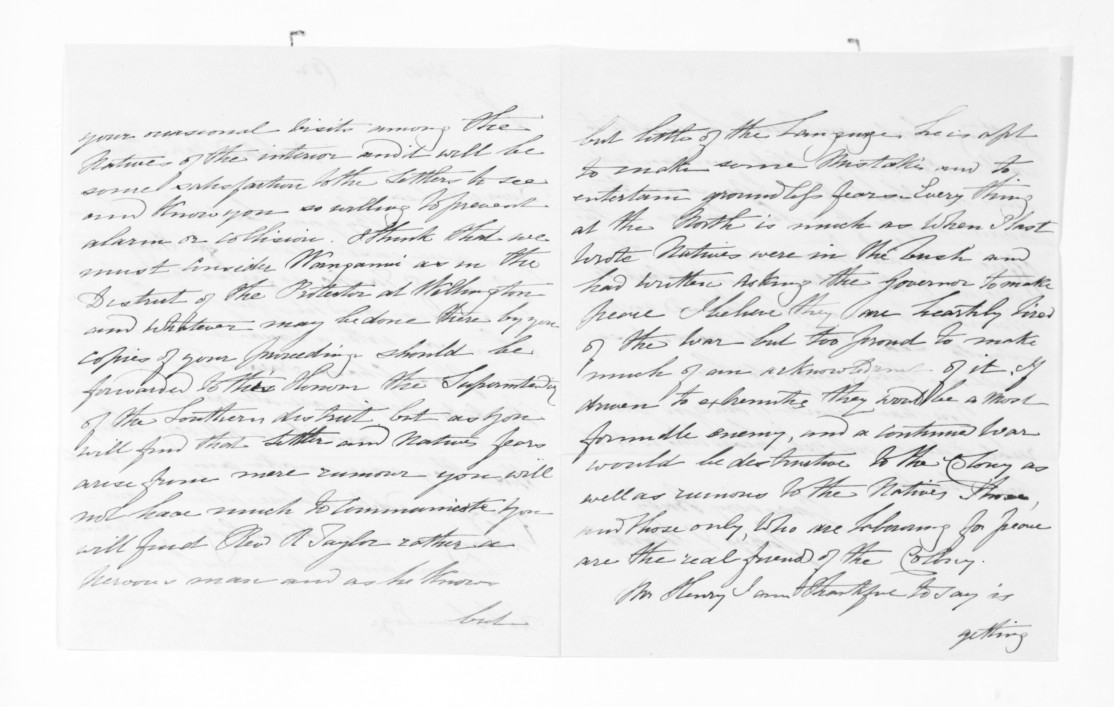 your occasional visits among the
Natives of the interior and it will be
some satisfaction to the settlers to see
and Know you so willing to prevent
alarm or collision. I think that we
must consider Wanganui as in the
District of the Protector at Wellington
and whatever may be done there by you
copies of your proceedings should be
forwarded to his Honour the Superintendg
of the Southern district but as you
will find that settler and Natives fears
arise from mere rumour you will
not have much to communicate You
will find Revd R Taylor rather a
nervous man and as he Knows
but
but little of the Language he is apt
to make some Mistakes and to
entertain groundless fears Every thing
at the North is much as when I last
wrote Natives were in the bush and
had written asking the Governor to make
peace I believe they are heartily tired
of the War but too proud to make
much of an of it, If
driven to extremities they would be a most
formidle enemy, and a continued War
would be destructive to the Colony as
well as ruinous to the Natives Those,
and those only, who are labouring for peace
are the real friend of the Colony.
Mr Henry I am thankful to say is
getting